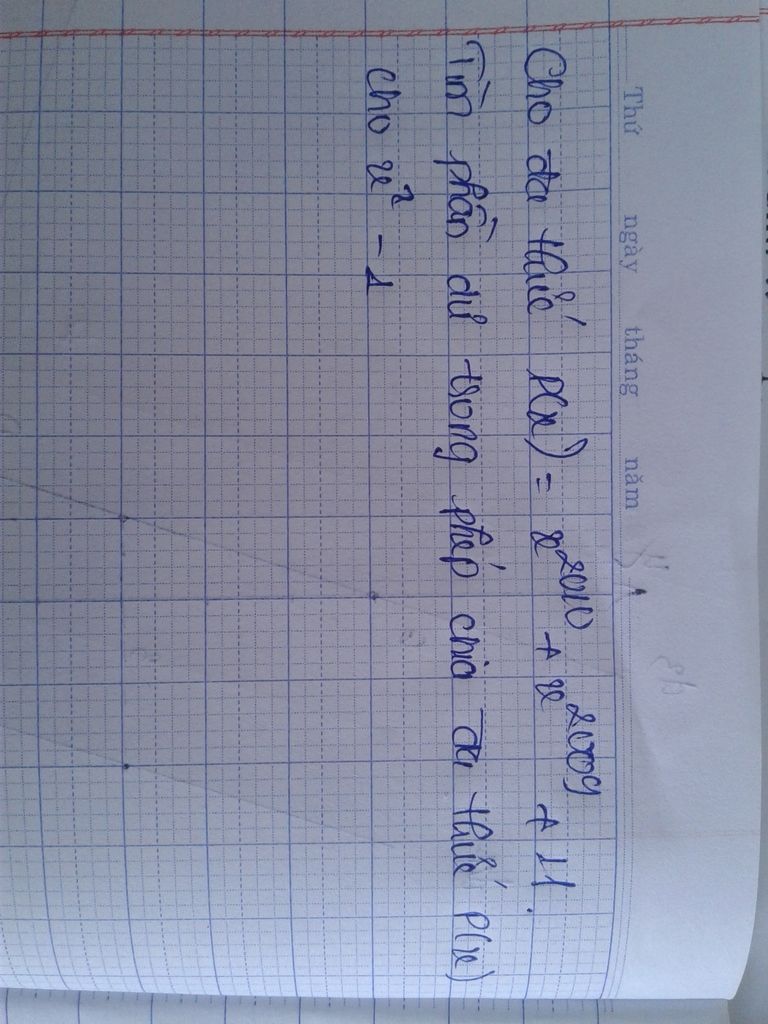 Thứ ngày tháng năm
Cho đa thức P(x) = x²⁰¹⁰ + x²⁰⁰⁹ + 11.
Tìm phần dư trong phép chia đa thức P(x)
cho x² - 1